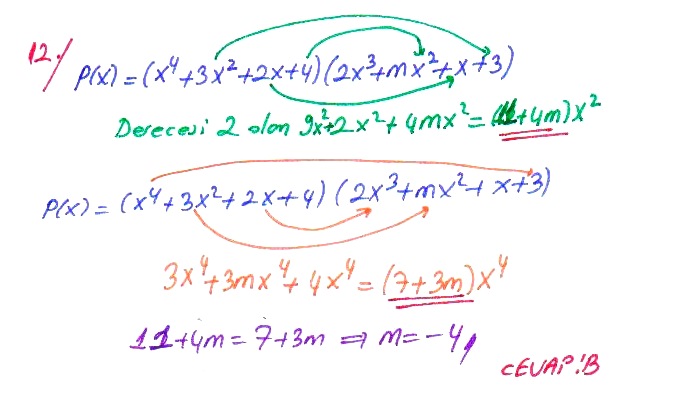 12./ P(x) = (x⁴+3x²+2x+4)(2x³+mx²+x+3)
Derecesi 2 olan 9x²+2x²+4mx² = (11+4m)x²
P(x) = (x⁴+3x²+2x+4)(2x³+mx²+x+3)
3x⁴+3mx⁴+4x⁴ = (7+3m)x⁴
11+4m = 7+3m ⇒ m = -4,
CEVAP:B